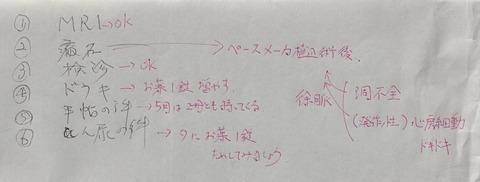 ① MRI→ok
② 病名→ペースメーカ植込術後.
③ 検診→ok
④ ドウキ→お薬1錠増やす
徐脈 洞不全
(発作性)心房細動
ドキドキ
⑤ 手帖の件→5月は2冊とも持ってくる
⑥ ひん尿の件→夕にお薬1錠
たしてみましょう